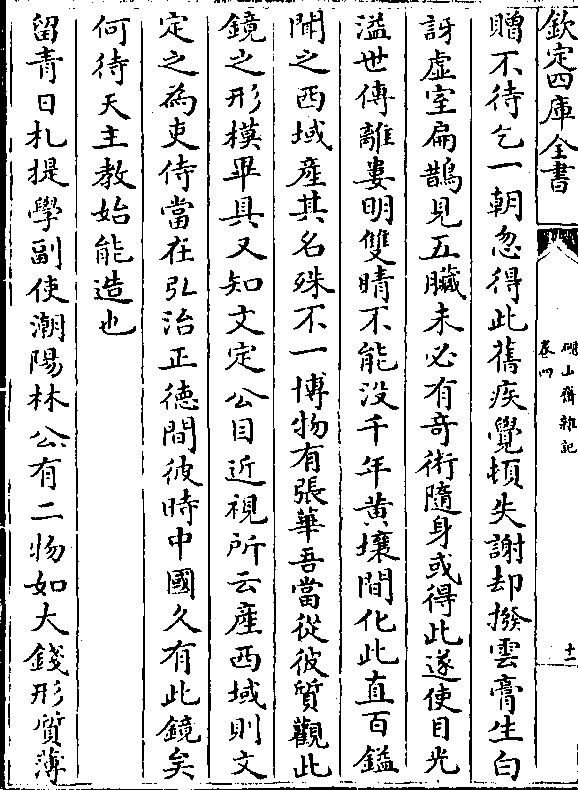 欽定四庫全書
硯山齋雜記
卷四
十二
贈不待乞一朝忽得此舊疾覺頓失謝却撥雲膏生白
訝虛室扁鵲見五臟未必有奇術隨身或得此遂使目光
溢世傳離婁明雙睛不能没千年黄壤間化此直百鎰
聞之西域産其名殊不一博物有張華吾當從彼質觀此
鏡之形模畢具又知文定公目近視所云産西域則文
定之為吏侍當在弘治正德間彼時中國久有此鏡矣
何待天主教始能造也
留青日札提學副使潮陽林公有二物如大錢形質薄